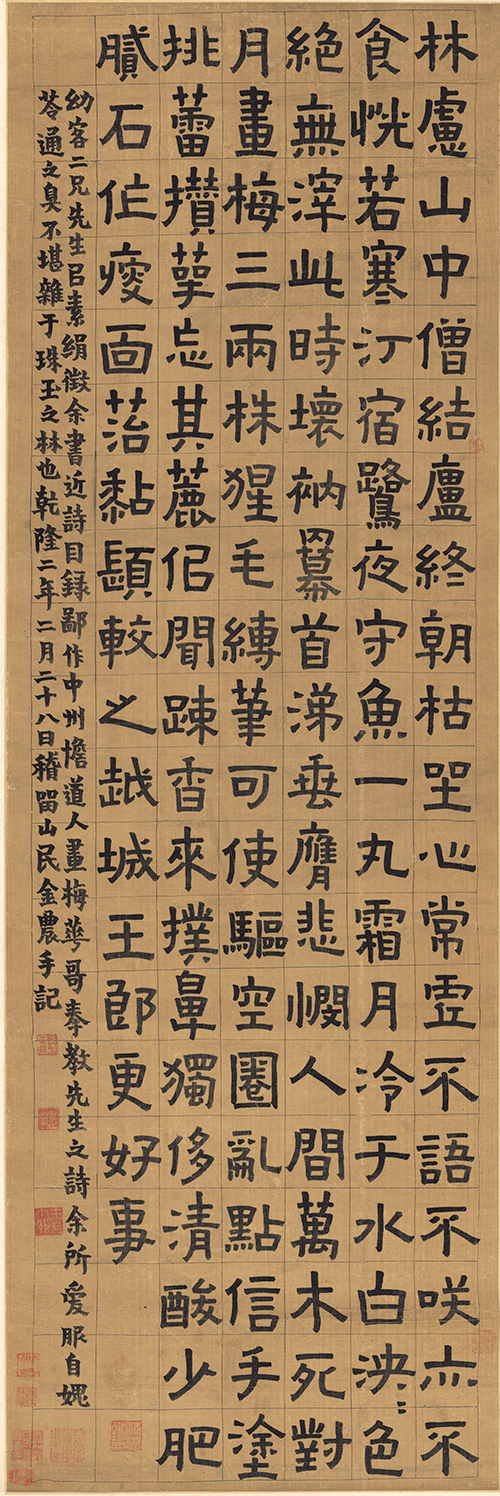 林慮山中僧結廬終朝枯坐心常虛不語不咲亦不
食恍若寒汀宿鷺夜守魚一丸霜月冷于水白泱〻色
絕無滓此時壞衲羃首涕垂膺悲憫人間萬木死對
月畫梅三兩株猩毛縛筆可使驅空圈亂點信手塗
挑蕾攢萼忘其麄但聞踈香來撲鼻獨侈清酸少肥
膩石作瘦面苔黏較之越城王郎更好事
幼客二兄先生㠯素絹徵余書近詩目録鄙作中州憺道人畫梅華哥奉教先生之詩余所愛服自媿
苓通之臭不堪雜于珠玉之林也乾隆二年二月二十八日稽留山民金農手記